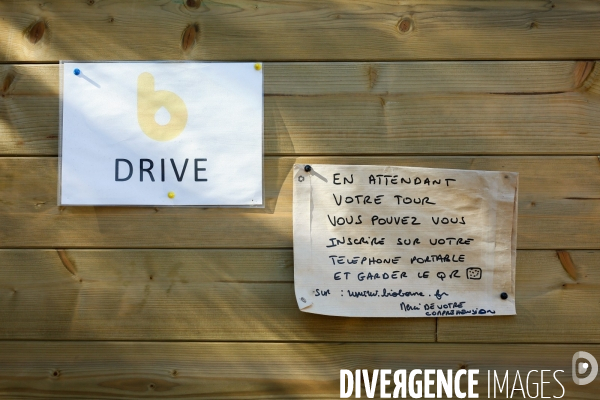 b
DRIVE
EN ATTENDANT
VOTRE TOUR
VOUS POUVEZ VOUS
INSCRIRE SUR VOTRE
TELEPHONE PORTABLE
ET GARDER LE QR
SUR : www.bioborne.fr
Merci DE VOTRE
COMPRÉHENSION
DIVERGENCE IMAGES D